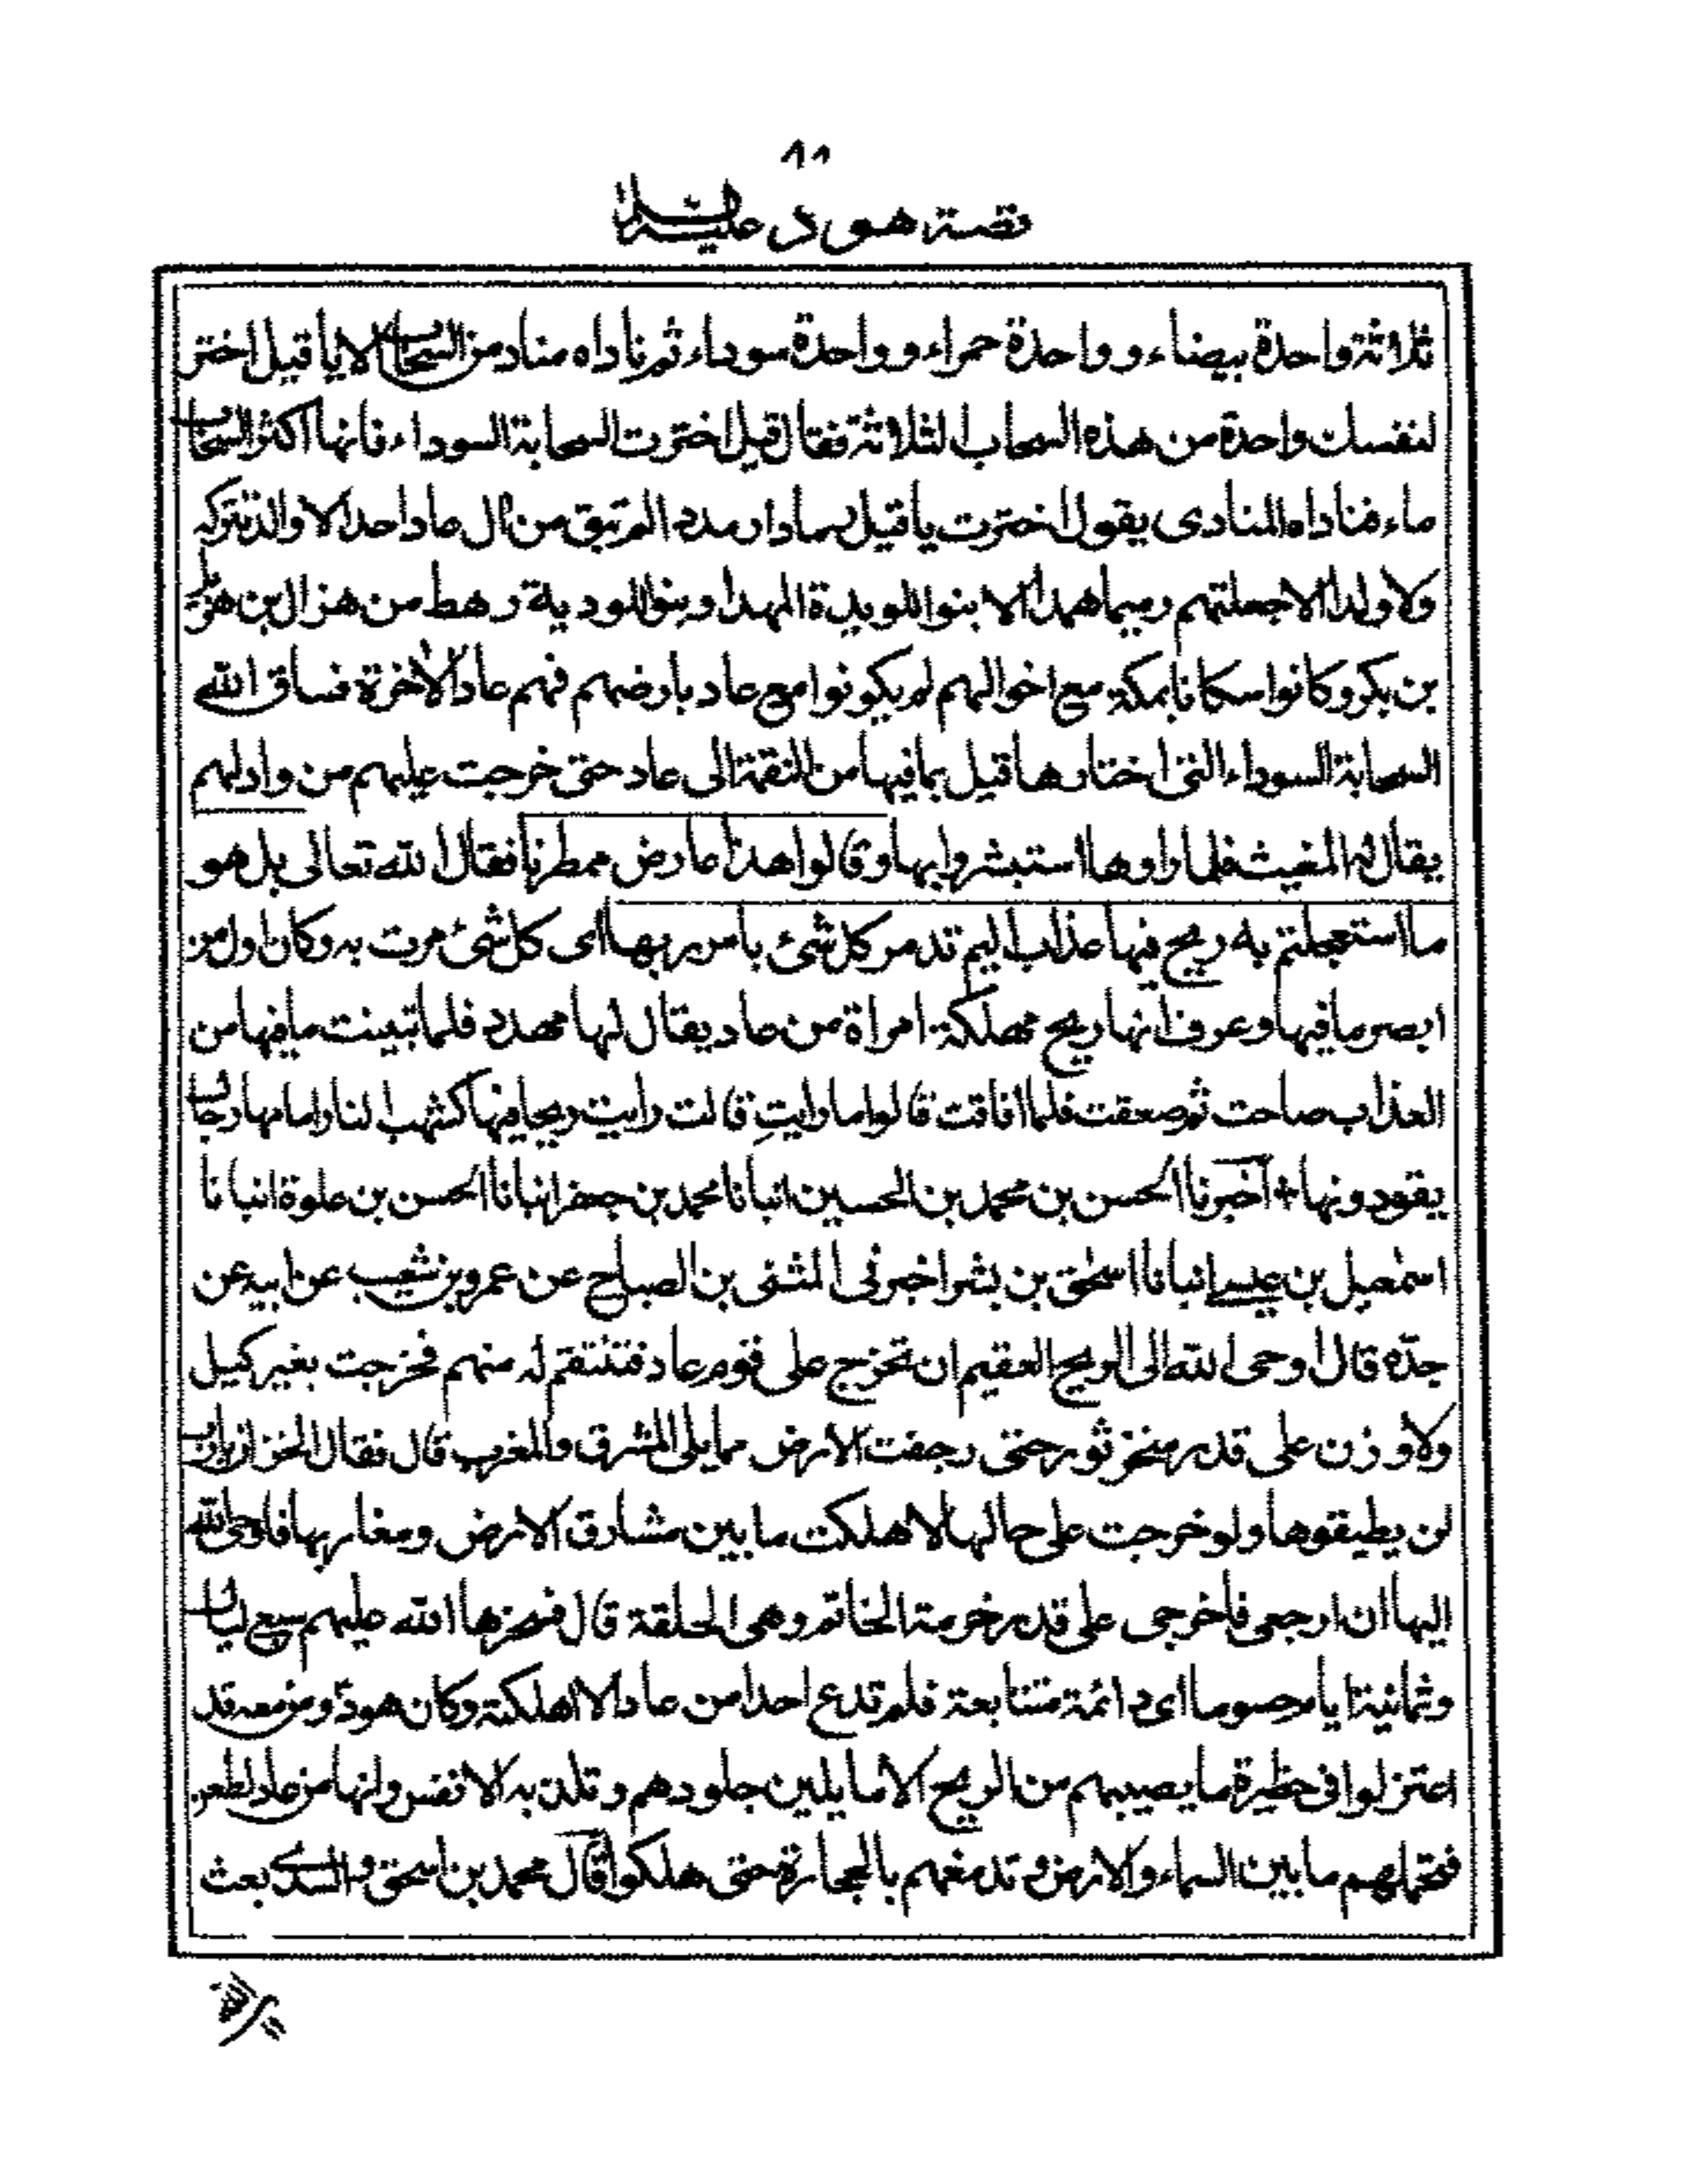 ٨١
قصة هود عليه السلام
ثلاثة واحدة بيضاء و واحدة حمراء و واحدة سوداء ثم ناداه مناد من السحاب الا يا قيل اختر
لنفسك واحدة من هذه السحاب الثلاثة فقال قيل اخترت السحابة السوداء فانها اكثر السحاب
ماء فناداه المنادى يقول اخترت يا قيل رمادا رمددا لم تبق من ال عاد احدا لا والد تتركه
ولا ولدا الا جعلتهم رميما همدا الا بنو اللويدة المهدا و بنو اللودية رهط من هزال بن هزيل
بن بكر و كانوا سكانا بمكة مع اخوالهم لم يكونوا مع عاد بارضهم فهم عاد الاخرة فساق الله
السحابة السوداء التى اختارها قيل بما فيها من النقمة الى عاد حتى خرجت عليهم من واد لهم
يقال له المغيث فلما راوها استبشروا بها وقالوا هذا عارض ممطرنا فقال الله تعالى بل هو
ما استعجلتم به ريح فيها عذاب اليم تدمر كل شئ بامر ربها اى كل شئ مرت به وكان اول من
ابصر ما فيها وعرف انها ريح مهلكة امراة من عاد يقال لها مهدد فلما تبينت ما فيها من
العذاب صاحت ثم صعقت فلما افاقت قالوا ما رايتِ قالت رايت ريحا فيها كشهب النار امامها رجال
يقودونها + اخبرنا الحسن بن محمد بن الحسين انبانا محمد بن جعفر انبانا الحسن بن علوة انبانا
اسمٰعيل بن عيسے انبانا اسحٰق بن بشر اخبرنى المثنى بن الصباح عن عمرو بن شعيب عن ابيه عن
جدّه قال اوحى الله الى الريح العقيم ان تخرج على قوم عاد فتنتقم له منهم فخرجت بغير كيل
ولا وزن على قدر منخر ثور حتى رجفت الارض مما يلى المشرق والمغرب قال فقال الخزان يارب
لن يطيقوها ولو خرجت على حالها لاهلكت ما بين مشارق الارض ومغاربها فاوحى الله
اليها ان ارجعى فاخرجى على قدر خرمة الخاتم وهى الحلقة قال فسخرها الله عليهم سبع ليال
وثمانية ايام حسوما اى دائمة متتابعة فلم تدع احدا من عاد الا اهلكته وكان هود ومن معه قد
اعتزلوا فى حظيرة ما يصيبهم من الريح الا ما يلين جلودهم و تلذ به الانفس وانها من عاد لطعن
فتحملهم ما بين السماء والارض وتدمغهم بالحجارة حتى هلكوا قال محمد بن اسحق والسدى بعث